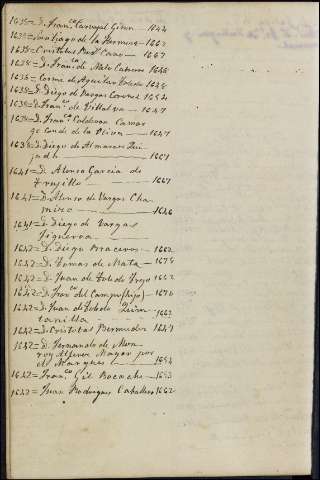 1635= D. Fran.co Carvajal Giron - 1644
1635= Santiago de la Hermosa - 1662
1635= Cristobal - 1667
1638= D. Fran.co de Mato Cabrera 1646
1636= Cosme de Aguilar Toledo 1646
1638= D. Diego de Vargas Coronel 1654
1638= D. Fran.co de Villalva - 1647
1638= D. Fran.co Calderon Camar
go conde de la Oliva - 1647
1638= D. Diego de Almaraces
- 1667
1641= D. Alonso Garcia de
Trujillo - 1667
1641= D. Alonso de Vargas Cha
mizo - 1646
1641= D. Diego de Vargas
Figueroa -
1642= D. Diego Braceros - 1662
1642= D. Tomas de Mata - 1675
1642= D. Juan de Toledo Trejo 1662
1642= D. Fran.co del Campo (hijo) - 1676
1642= D. Juan de Toledo Quin
tanilla - 1662
1642= D. Cristobal Bermudez 1647
1642= D. Fernando de Mon
roy Alferez Mayor por
el Marques - 1654
1642= Fran.co Gil Bocache - 1653
1642= Juan Rodriguez Caballero 1662